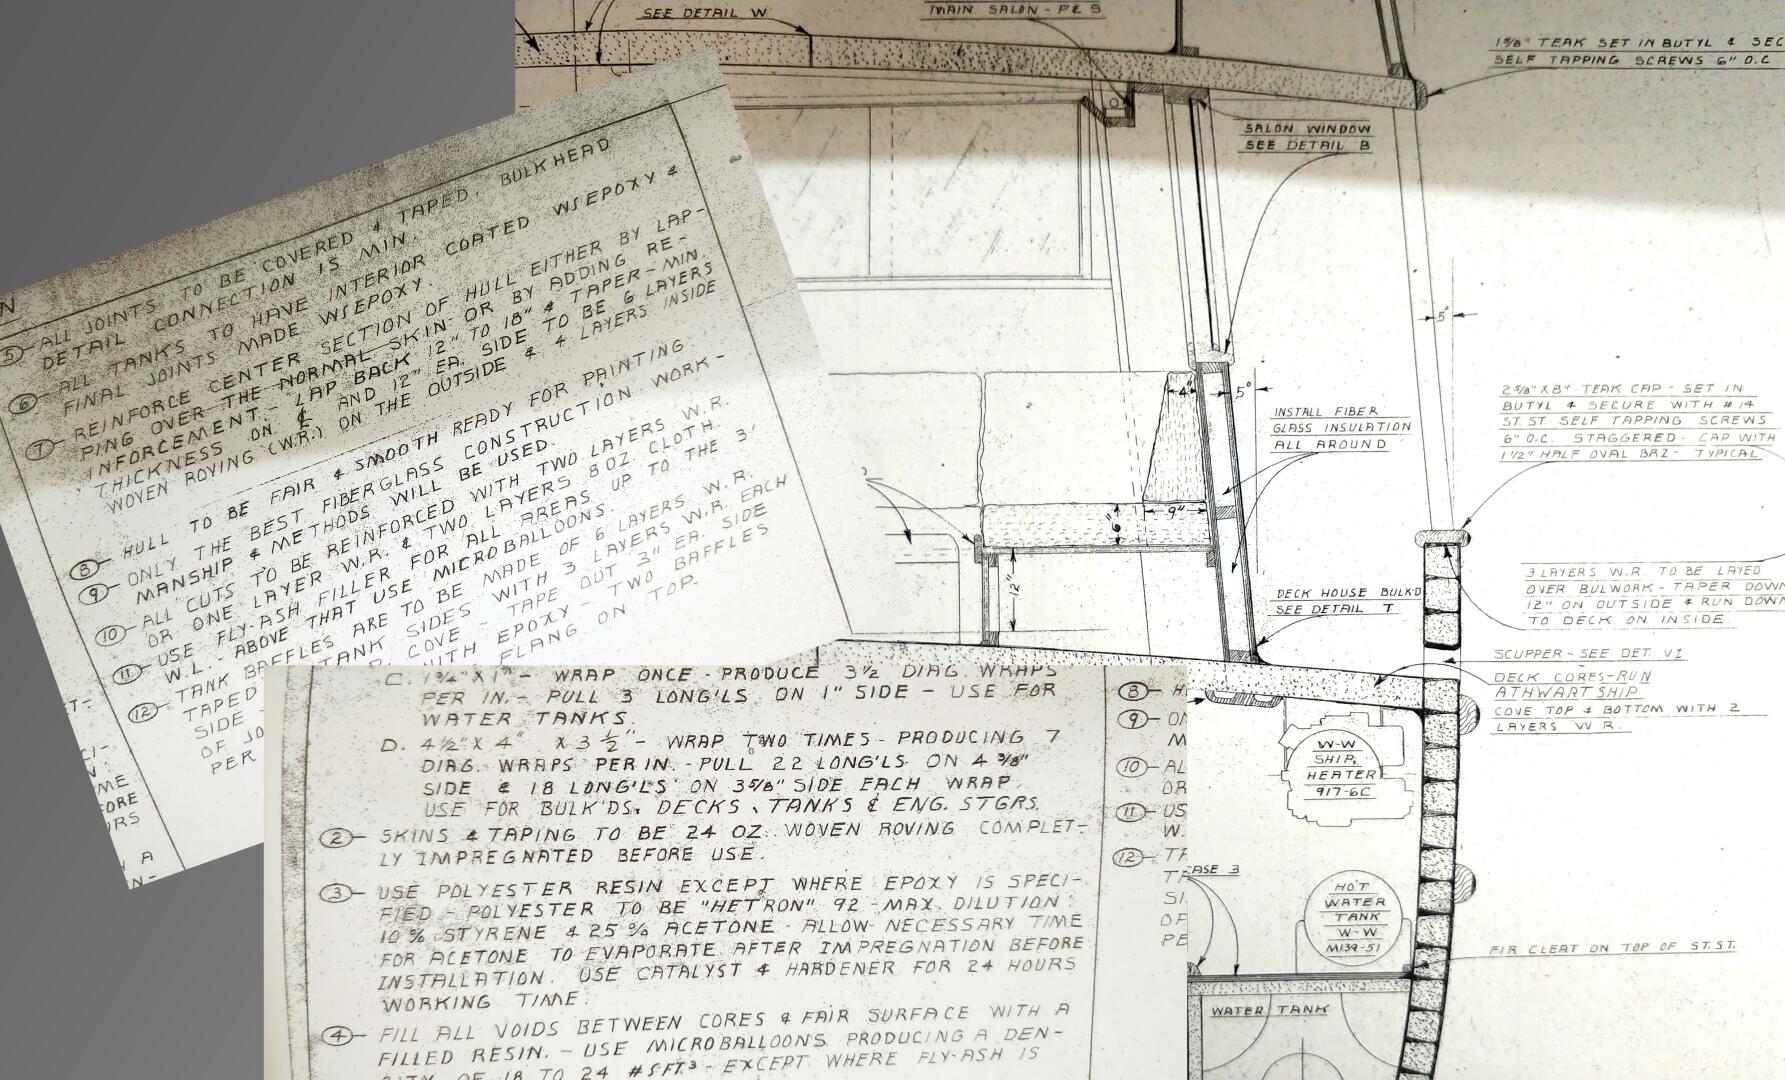 SEE DETAIL W
MAIN SALON - PC S
1 5/8" TEAK SET IN BUTYL & SEC
SELF TAPPING SCREWS 6" O.C
SALON WINDOW
SEE DETAIL B
5°
2 5/8" X 8" TEAK CAP - SET IN
BUTYL & SECURE WITH #14
ST. ST. SELF TAPPING SCREWS
6" O.C. STAGGERED - CAP WITH
1 1/2" HALF OVAL BRZ - TYPICAL
4"
5°
INSTALL FIBER
GLASS INSULATION
ALL AROUND
9"
6"
12"
DECK HOUSE BULK'D
SEE DETAIL T
3 LAYERS W.R. TO BE LAYED
OVER BULWORK - TAPER DOWN
12" ON OUTSIDE & RUN DOWN
TO DECK ON INSIDE
SCUPPER - SEE DET. V1
DECK CORES - RUN
ATHWARTSHIP
COVE TOP & BOTTOM WITH 2
LAYERS W.R.
W-W
SHIP.
HEATER
917-6C
HOT
WATER
TANK
W-W
M139-51
ASE 3
FIR CLEAT ON TOP OF ST. ST.
WATER TANK
N
5 - ALL JOINTS TO BE COVERED & TAPED. BULKHEAD
DETAIL CONNECTION IS MIN.
6 ALL TANKS TO HAVE INTERIOR COATED W/EPOXY &
FINAL JOINTS MADE W/EPOXY.
7 - REINFORCE CENTER SECTION OF HULL EITHER BY LAP-
PING OVER THE NORMAL SKIN OR BY ADDING RE-
INFORCEMENT. - LAP BACK 12" TO 18" & TAPER - MIN.
THICKNESS ON ℄ AND 12" EA. SIDE TO BE 6 LAYERS
WOVEN ROVING (W.R.) ON THE OUTSIDE & 4 LAYERS INSIDE
8 - HULL TO BE FAIR & SMOOTH READY FOR PAINTING
9 - ONLY THE BEST FIBERGLASS CONSTRUCTION WORK-
MANSHIP & METHODS WILL BE USED.
10 - ALL CUTS TO BE REINFORCED WITH TWO LAYERS W.R.
OR ONE LAYER W.R. & TWO LAYERS 8 OZ CLOTH.
11 - USE FLY-ASH FILLER FOR ALL AREAS UP TO THE 3'
W.L. - ABOVE THAT USE MICROBALLOONS.
12 - TANK BAFFLES ARE TO BE MADE OF 6 LAYERS W.R.
TAPED TANK SIDES WITH 3 LAYERS W.R. EACH
SIDE - COVE - TAPE OUT 3" EA. SIDE
OF JO WITH EPOXY - TWO BAFFLES
PER FLANG ON TOP.
C. 1 3/4" X 1" - WRAP ONCE - PRODUCE 3 1/2 DIAG WRAPS
PER IN. - PULL 3 LONG'LS ON 1" SIDE - USE FOR
WATER TANKS.
D. 4 1/2" X 4" X 3 1/2" - WRAP TWO TIMES - PRODUCING 7
DIAG. WRAPS PER IN. - PULL 22 LONG'LS ON 4 3/8"
SIDE & 18 LONG'LS ON 3 5/8" SIDE EACH WRAP.
USE FOR BULK'DS, DECKS, TANKS & ENG. STGRS.
2 - SKINS & TAPING TO BE 24 OZ. WOVEN ROVING COMPLET-
LY IMPREGNATED BEFORE USE.
3 - USE POLYESTER RESIN EXCEPT WHERE EPOXY IS SPECI-
FIED - POLYESTER TO BE "HETRON" 92 - MAX. DILUTION
10% STYRENE & 25% ACETONE - ALLOW NECESSARY TIME
FOR ACETONE TO EVAPORATE AFTER IMPREGNATION BEFORE
INSTALLATION. USE CATALYST & HARDENER FOR 24 HOURS
WORKING TIME.
4 - FILL ALL VOIDS BETWEEN CORES & FAIR SURFACE WITH A
FILLED RESIN. - USE MICROBALLOONS PRODUCING A DEN-
SITY OF 18 TO 24 #S/FT³ - EXCEPT WHERE FLY-ASH IS
8 - H
9 - ON
M
10 - AL
OR
11 - US
W.
12 - TA
TA
SI
OF
PE